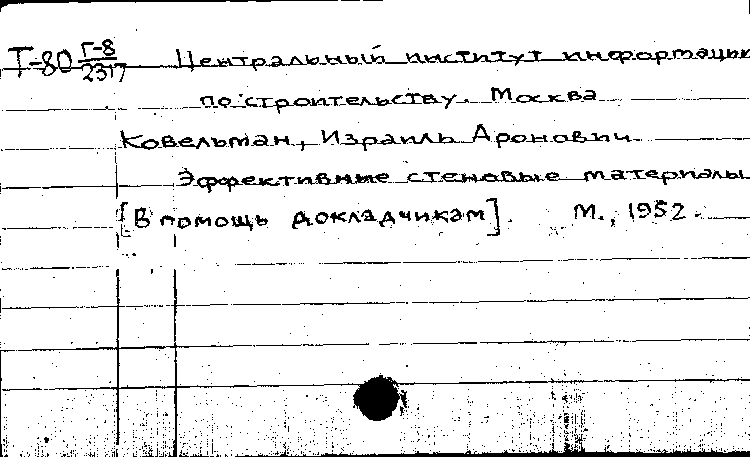 Т-80 Г-8/2317 Центральный институт информации
по строительству. Москва
Ковельман, Израиль Аронович
Эффективные стеновые материалы
[В помощь докладчикам]. М., 1952.